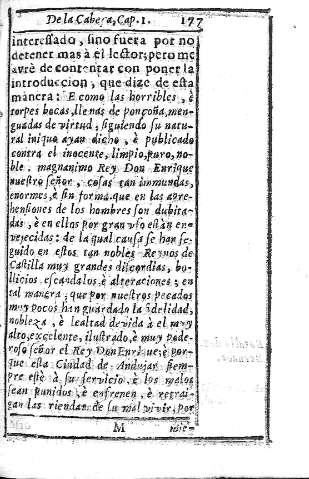 De la Cabeça, Cap. I. 177
interessado, sino fuera por no
detener mas à el lector, pero me
avrè de contentar con poner la
introduccion, que dize de esta
manera: E como las horribles, è
torpes bocas, llenas de ponçoña, men-
guadas de virtud, siguiendo su natu-
ral iniquo ayan dicho, è publicado
contra el inocente, limpio, puro, no-
ble, magnanimo Rey Don Enrique
nuestro señor, cosas tan immundas,
enormes, è sin forma, que en las apre-
hensiones de los hombres son dubita-
das, è en ellos por gran uso están en-
vejecidas: de la qual causa se han se-
guido en estos tan nobles Reynos de
Castilla muy grandes discordias, bo-
llicios escandalos, è alteraciones; en
tal manera, que por nuestros pecados
muy pocos han guardado la fidelidad,
nobleza, è lealtad devida à el muy
alto, excelente, ilustrado, è muy pode-
roso señor el Rey Don Enrique; è por-
que esta Ciudad de Andujar siem-
pre estè à su servicio, è los malos
sean punidos, è enfrenen, è retrai-
gan las riendas de su mal vivir, por
M mie-